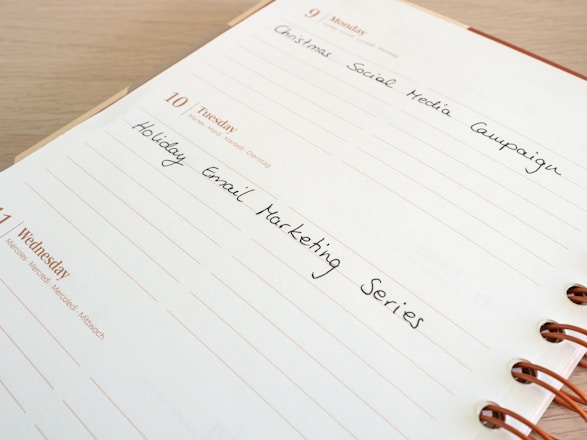 9 Monday
Christmas Social Media Campaign
10 Tuesday
Martes Mardi Martedì Dienstag
Holiday Email Marketing Series
11 Wednesday
Miércoles Mercredi Mercoledì Mittwoch